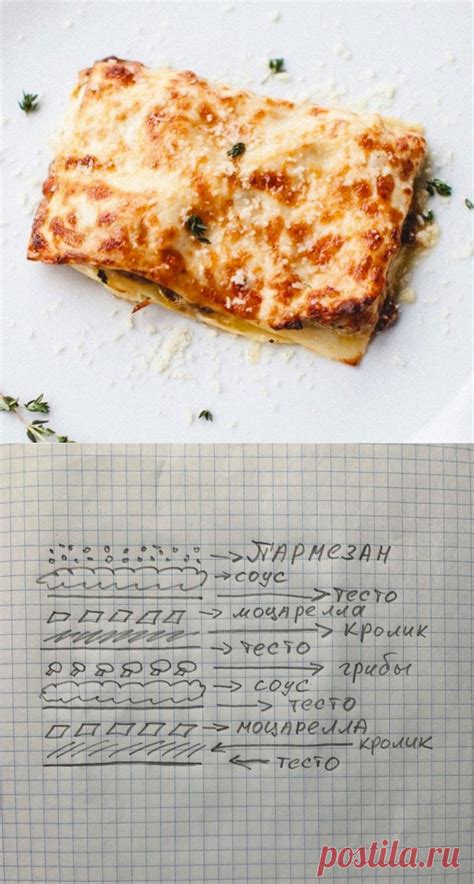 ПАРМЕЗАН
СОУС
ТЕСТО
МОЦАРЕЛЛА
КРОЛИК
ТЕСТО
ГРИБЫ
СОУС
ТЕСТО
МОЦАРЕЛЛА
КРОЛИК
ТЕСТО
postila.ru